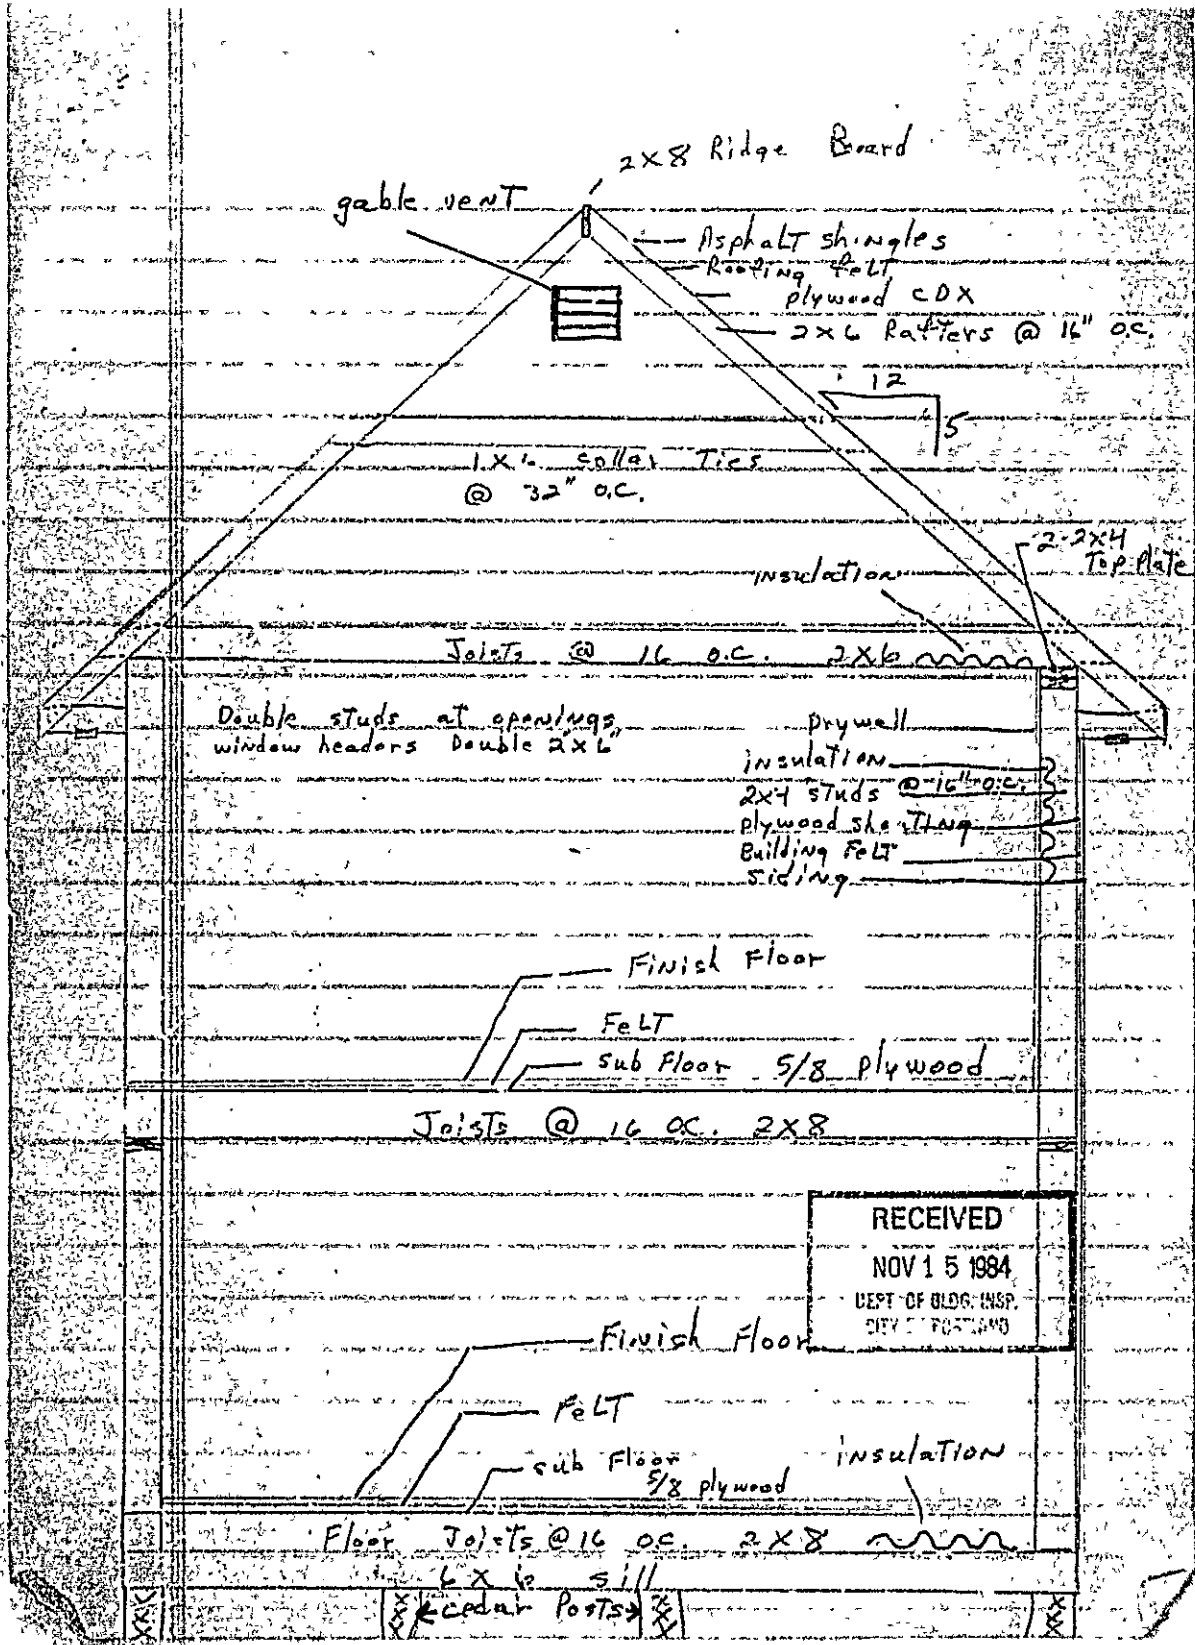 2X8 Ridge Board
gable venT
AsphalT shingles
Roofing feLT
plywood CDX
2X6 RafTers @ 16" O.C.
12
5
1X6 collar Ties
@ 32" O.C.
2-2X4
Top Plate
insulation
Joists @ 16 O.C. 2X6
Double studs at openings
window headors Double 2"X6"
drywall
insulaTion
2X4 sTuds @ 16" O.C.
plywood sheaTing
Building FeLT
siding
Finish Floor
FeLT
sub Floor 5/8 plywood
JoisTs @ 16 O.C. 2X8
RECEIVED
NOV 15 1984
DEPT OF BLDG. INSP.
CITY OF PORTLAND
Finish Floor
FeLT
sub Floor
5/8 plywood
insulaTion
Floor Joists @ 16 O.C. 2X8
6X6 sill
cedar Posts